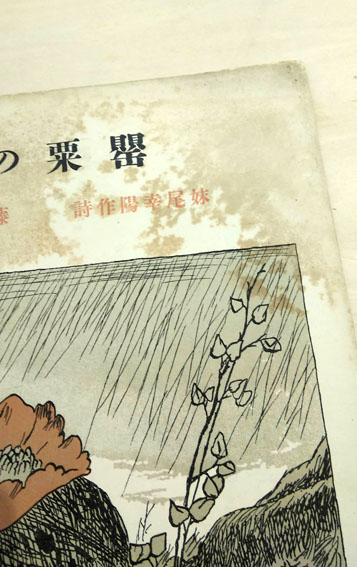 罌粟の
妹尾幸陽作詩 藤